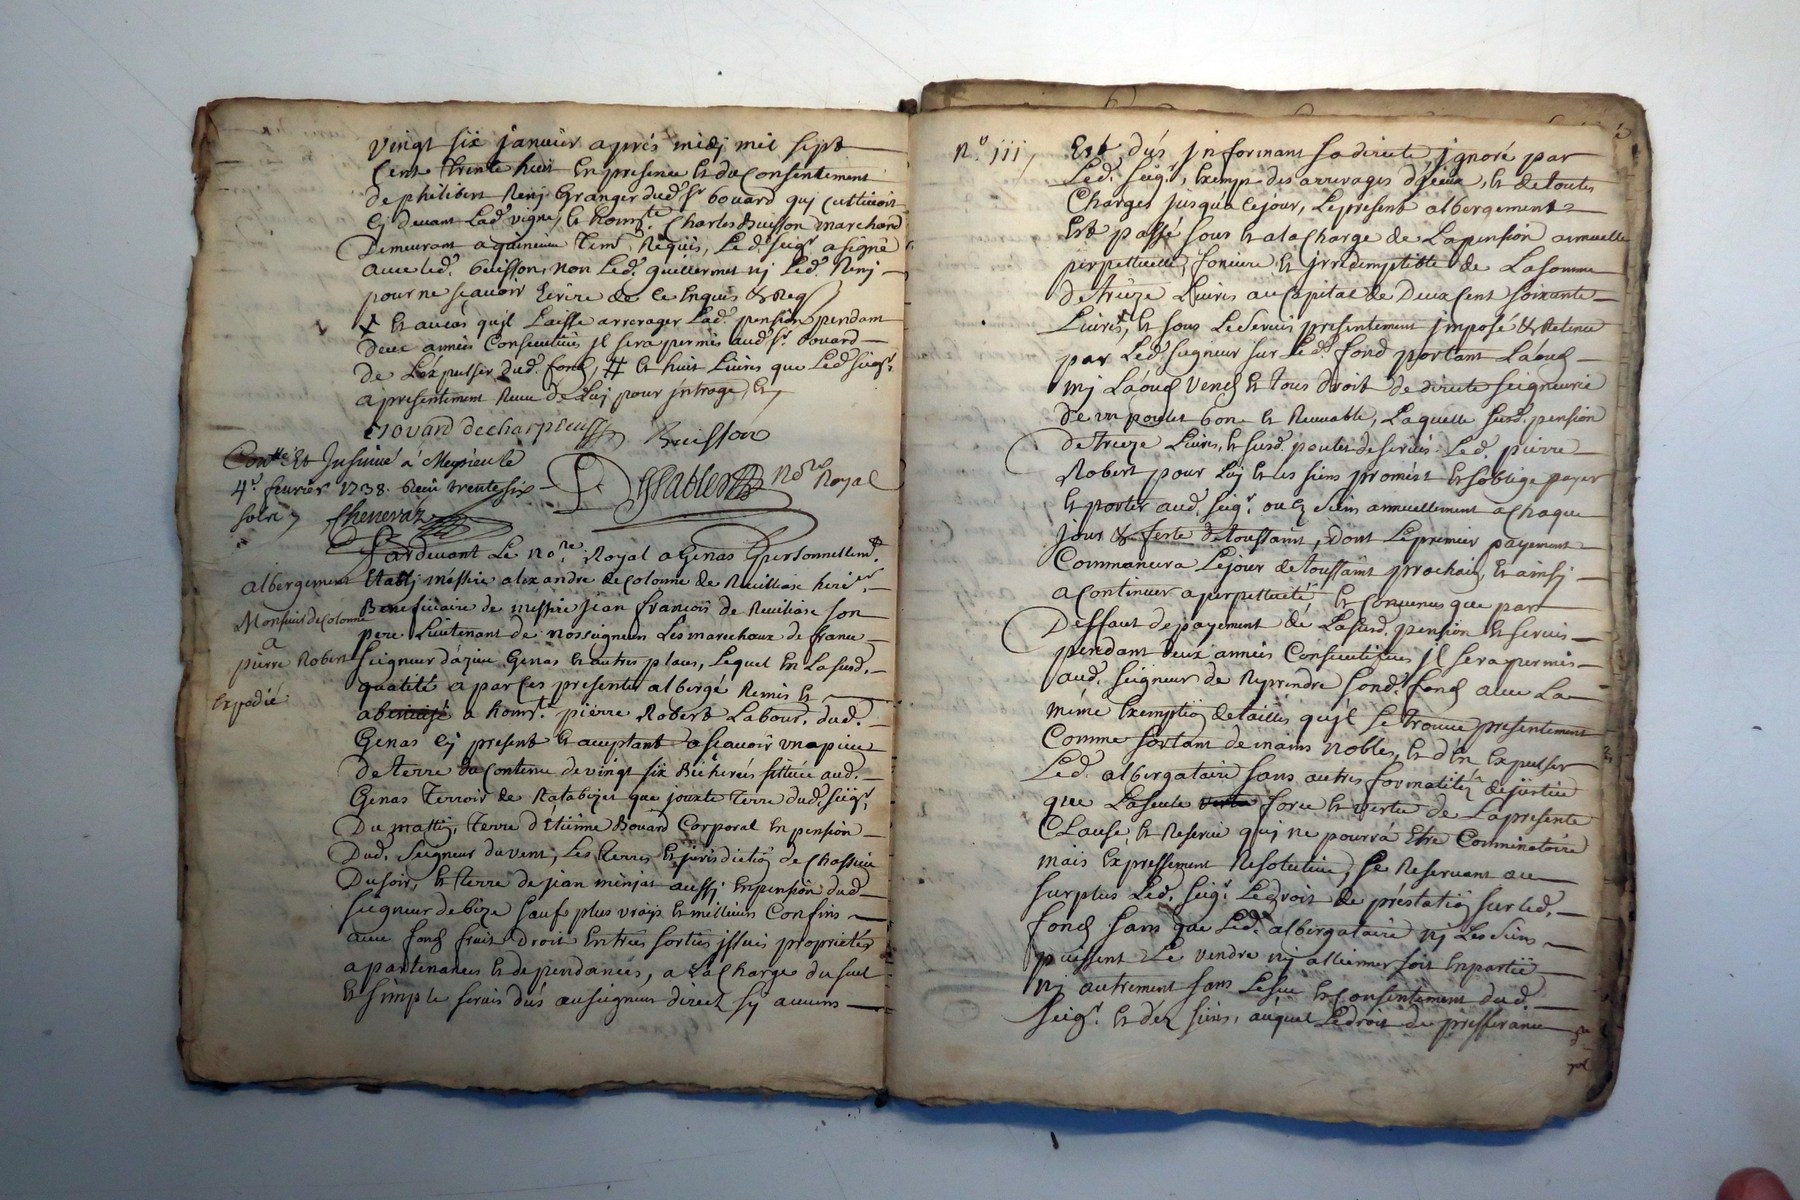 vingt six janvier aprés midj mil sept
Cent trente huit En presence et du Consentement
de philibert Renj Granger dud. Sr bouard quj Cultivoit
Cj devant Lad. vigne, et honnte. Charles Buisson marchand
Demeurant a quineieu tems. Requis, Led. seigr. a signé
avec led. buisson, non Led. guillermet nj Led. Renj
pour ne scavoir Ecrire de ce Enquis & Req
X Et au cas qu'jl Laisse arrerager Lad. pension pendant
deux années Consecutives jl sera permis aud. Sr. bouard
de L'éxpulser dud. fond, # et huit Livres que Led. seigr.
a presentement Receu de Luj pour jntroge, &
Bovard de charpieux Buisson
Conttlé et Jnsinué á Meyzieu le
4e. fevrier 1738. Receu trente six
sols Chenevaz
Sablet Nore Royal
Pardevant Le nore. Royal a Genas personnellemt.
albergement
Etablj messire alexandre de Colonne de Reviliasc heritier
Beneficiaire de messire jean françois de Reviliasc son
Monsieur de Colonne
pere Lieutenant de nosseigneurs Les marechaux de france
a
pierre Robert
seigneur d'azieu Genas et autres places, Lequel En La susd.
qualité a par ces presentes albergé Remis et
Expedié
a honte. pierre Robert Labour. dud.
Genas Cj present et acceptant a scavoir une piece
de terre du Contenu de vingt six Bicherées sittuée aud.
Genas terroir de Ratabizet que jouxte terre dud. seigr.
Du mattin, terre d'Etienne Bouard Corporal En pension
Dud. Seigneur du vent, Les terres et jurisdictiõ de Chassieu
Du soir, et terre de jean minjat aussj En pension dud.
seigneur de bize sauf plus vrays et meilleurs Confins
avec fond fruit Droit Entrées sorties jssuës proprietés
apartenances et dependances, a La Charge du seul
et simple servis dûs au seigneur direct sy aucuns
N.º 111,
Est dûs jnformant sa directe jgnoré par
Led. Seigr., Exempt des arrerages d'jceux, et de toutes
Charges jusqu'a ce jour, Le present albergement
Est passé sous et a la Charge de La pension annuelle
perpettuelle, fonciere et jrredemptible de La somme
de treize Livres au Capital de Deux Cent soixante
Livres, et sous Le servis presentement jmposé & Retenu
par Led. seigneur sur Led. fond portant Laoud
mj Laoud vend et tous droit de directe seigneurie
de un poulet bon et Recevable, Laquelle susd. pension
de treize Livres, et susd. poulet de servis Led. pierre
Robert pour Luj et les siens promést et s'oblige payer
et porter aud. seigr. ou és siens annuellement a chaque
jour & feste de toussaint, dont Le premier payement
Commancera Le jour de toussaint prochain, et ainsj
a continuer a perpettuité et Convenus que par
Deffaut de payement de La susd. pension et servis
pendant deux années Consecutives jl sera permis
aud. seigneur de Reprendre sond. fond avec La
même Exemptiõ de tailles qu'jl se trouve presentement
Comme sortant de mains nobles, et d'en Expulser
Led. albergataire sans autres formalités de justice
que La seule force et vertu de La presente
Clause, et Reserve quj ne pourra Etre Comminatoire
mais Expressement Resolutive, se Reservant au
surplus Led. seigr. Le droit de préstatiõ sur led.
fond sans que Led. albergataire nj Les siens
puissent Le vendre nj allienner soit En partie
nj autrement sans Le sceu et Consentement dud.
seigr. et des siens, auquel Le droit de prefferance